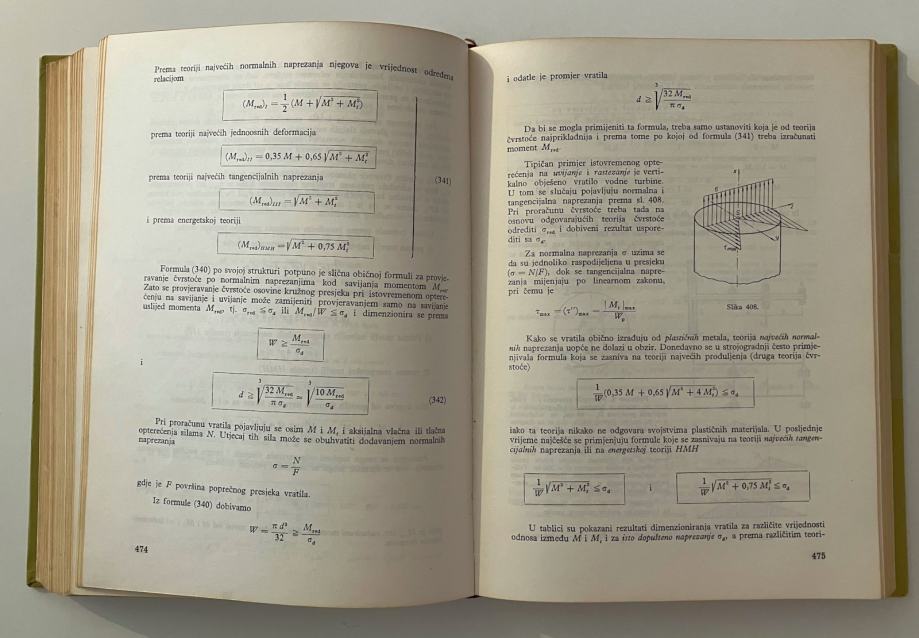 Prema teoriji najvećih normalnih naprezanja njegova je vrijednost određena
relacijom
(M_red)_I = 1/2 (M + √M² + M_t²)
prema teoriji najvećih jednoosnih deformacija
(M_red)_II = 0,35 M + 0,65 √M² + M_t²
prema teoriji najvećih tangencijalnih naprezanja
(341)
(M_red)_III = √M² + M_t²
i prema energetskoj teoriji
(M_red)_HMH = √M² + 0,75 M_t²
Formula (340) po svojoj strukturi potpuno je slična običnoj formuli za provje-
ravanje čvrstoće po normalnim naprezanjima kod savijanja momentom M_red.
Zato se provjeravanje čvrstoće osovine kružnog presjeka pri istovremenom optere-
ćenju na savijanje i uvijanje može zamijeniti provjeravanjem samo na savijanje
uslijed momenta M_red, tj. σ_red ≤ σ_d ili M_red/W ≤ σ_d i dimenzionira se prema
W ≥ M_red/σ_d
i
d ≥ ∛32 M_red/π σ_d ≈ ∛10 M_red/σ_d (342)
Pri proračunu vratila pojavljuju se osim M i M_t i aksijalna vlačna ili tlačna
opterećenja silama N. Utjecaj tih sila može se obuhvatiti dodavanjem normalnih
naprezanja
σ = N/F
gdje je F površina poprečnog presjeka vratila.
Iz formule (340) dobivamo
W = π d³/32 ≥ M_red/σ_d
474
i odatle je promjer vratila
d ≥ ∛32 M_red/π σ_d
Da bi se mogla primijeniti ta formula, treba samo ustanoviti koja je od teorija
čvrstoće najprikladnija i prema tome po kojoj od formula (341) treba izračunati
moment M_red.
Tipičan primjer istovremenog opte-
rećenja na uvijanje i rastezanje je verti-
kalno obješeno vratilo vodne turbine.
U tom se slučaju pojavljuju normalna i
tangencijalna naprezanja prema sl. 408.
Pri proračunu čvrstoće treba tada na
osnovu odgovarajućih teorija čvrstoće
odrediti σ_red i dobiveni rezultat uspore-
diti sa σ_d.
Za normalna naprezanja σ uzima se
da su jednoliko raspodijeljena u presjeku
(σ = N/F), dok se tangencijalna napre-
zanja mijenjaju po linearnom zakonu,
pri čemu je
τ_max = (τ'')_max = |M_t|_max/W_p
Slika 408.
Kako se vratila obično izrađuju od plastičnih metala, teorija najvećih normal-
nih naprezanja uopće ne dolazi u obzir. Donedavno se u strojogradnji često primje-
njivala formula koja se zasniva na teoriji najvećih produljenja (druga teorija čvr-
stoće)
1/W (0,35 M + 0,65 √M² + 4 M_t²) ≤ σ_d
iako ta teorija nikako ne odgovara svojstvima plastičnih materijala. U posljednje
vrijeme najčešće se primjenjuju formule koje se zasnivaju na teoriji najvećih tangen-
cijalnih naprezanja ili na energetskoj teoriji HMH
1/W √M² + M_t² ≤ σ_d i 1/W √M² + 0,75 M_t² ≤ σ_d
U tablici su pokazani rezultati dimenzioniranja vratila za različite vrijednosti
odnosa između M i M_t i za isto dopušteno naprezanje σ_d, a prema različitim teori-
475